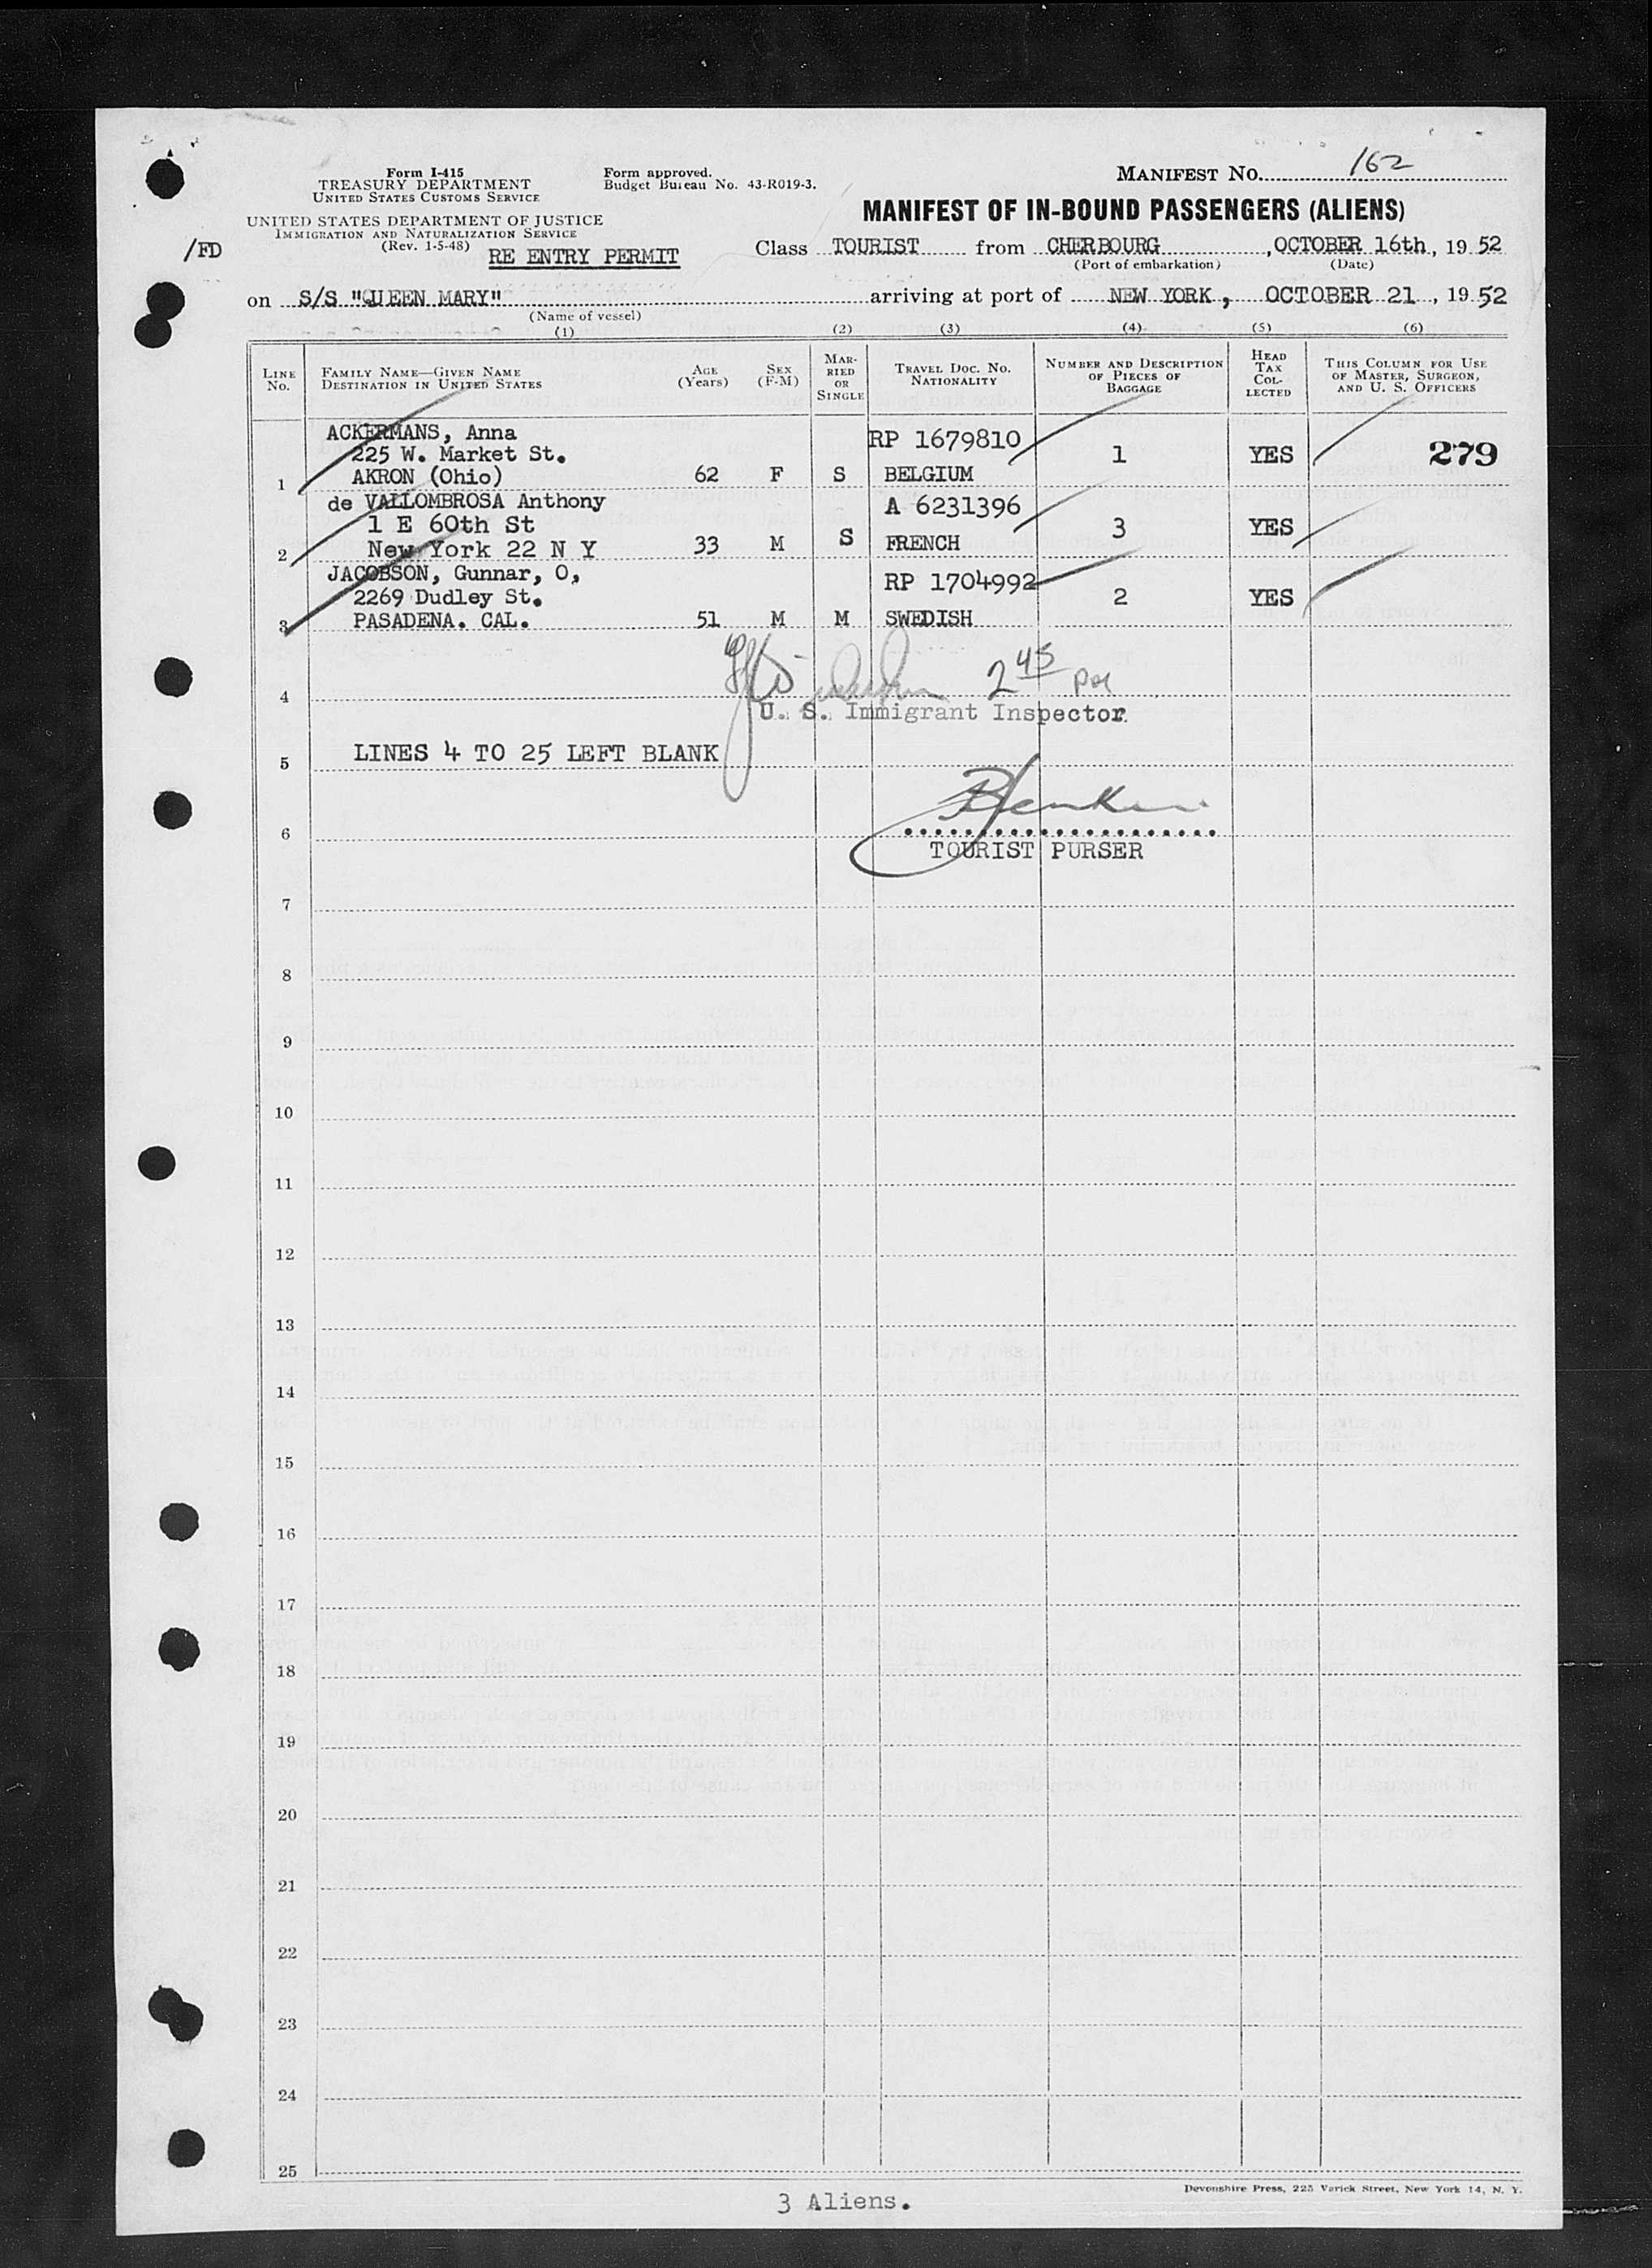 Form I-415
TREASURY DEPARTMENT
UNITED STATES CUSTOMS SERVICE
UNITED STATES DEPARTMENT OF JUSTICE
IMMIGRATION AND NATURALIZATION SERVICE
(Rev. 1-5-48)
Form approved.
Budget Bureau No. 43-R019-3.
MANIFEST NO. 162
MANIFEST OF IN-BOUND PASSENGERS (ALIENS)
/FD
RE ENTRY PERMIT
Class TOURIST from CHERBOURG, OCTOBER 16th, 1952
(Port of embarkation) (Date)
on S/S "QUEEN MARY" arriving at port of NEW YORK, OCTOBER 21, 1952
(Name of vessel)
(1) (2) (3) (4) (5) (6)
LINE No.
FAMILY NAME—GIVEN NAME
DESTINATION IN UNITED STATES
AGE (Years)
SEX (F-M)
MARRIED OR SINGLE
TRAVEL DOC. NO.
NATIONALITY
NUMBER AND DESCRIPTION OF PIECES OF BAGGAGE
HEAD TAX COLLECTED
THIS COLUMN FOR USE OF MASTER, SURGEON, AND U. S. OFFICERS
ACKERMANS, Anna RP 1679810
225 W. Market St. 1 YES 279
1 AKRON (Ohio) 62 F S BELGIUM
de VALLOMBROSA Anthony A 6231396
1 E 60th St 3 YES
2 New York 22 N Y 33 M S FRENCH
JACOBSON, Gunnar, O, RP 1704992
2269 Dudley St. 2 YES
3 PASADENA. CAL. 51 M M SWEDISH
2 45 pm
4
U. S. Immigrant Inspector
LINES 4 TO 25 LEFT BLANK
5
6
TOURIST PURSER
7
8
9
10
11
12
13
14
15
16
17
18
19
20
21
22
23
24
25
3 Aliens.
Devonshire Press, 225 Varick Street, New York 14, N. Y.